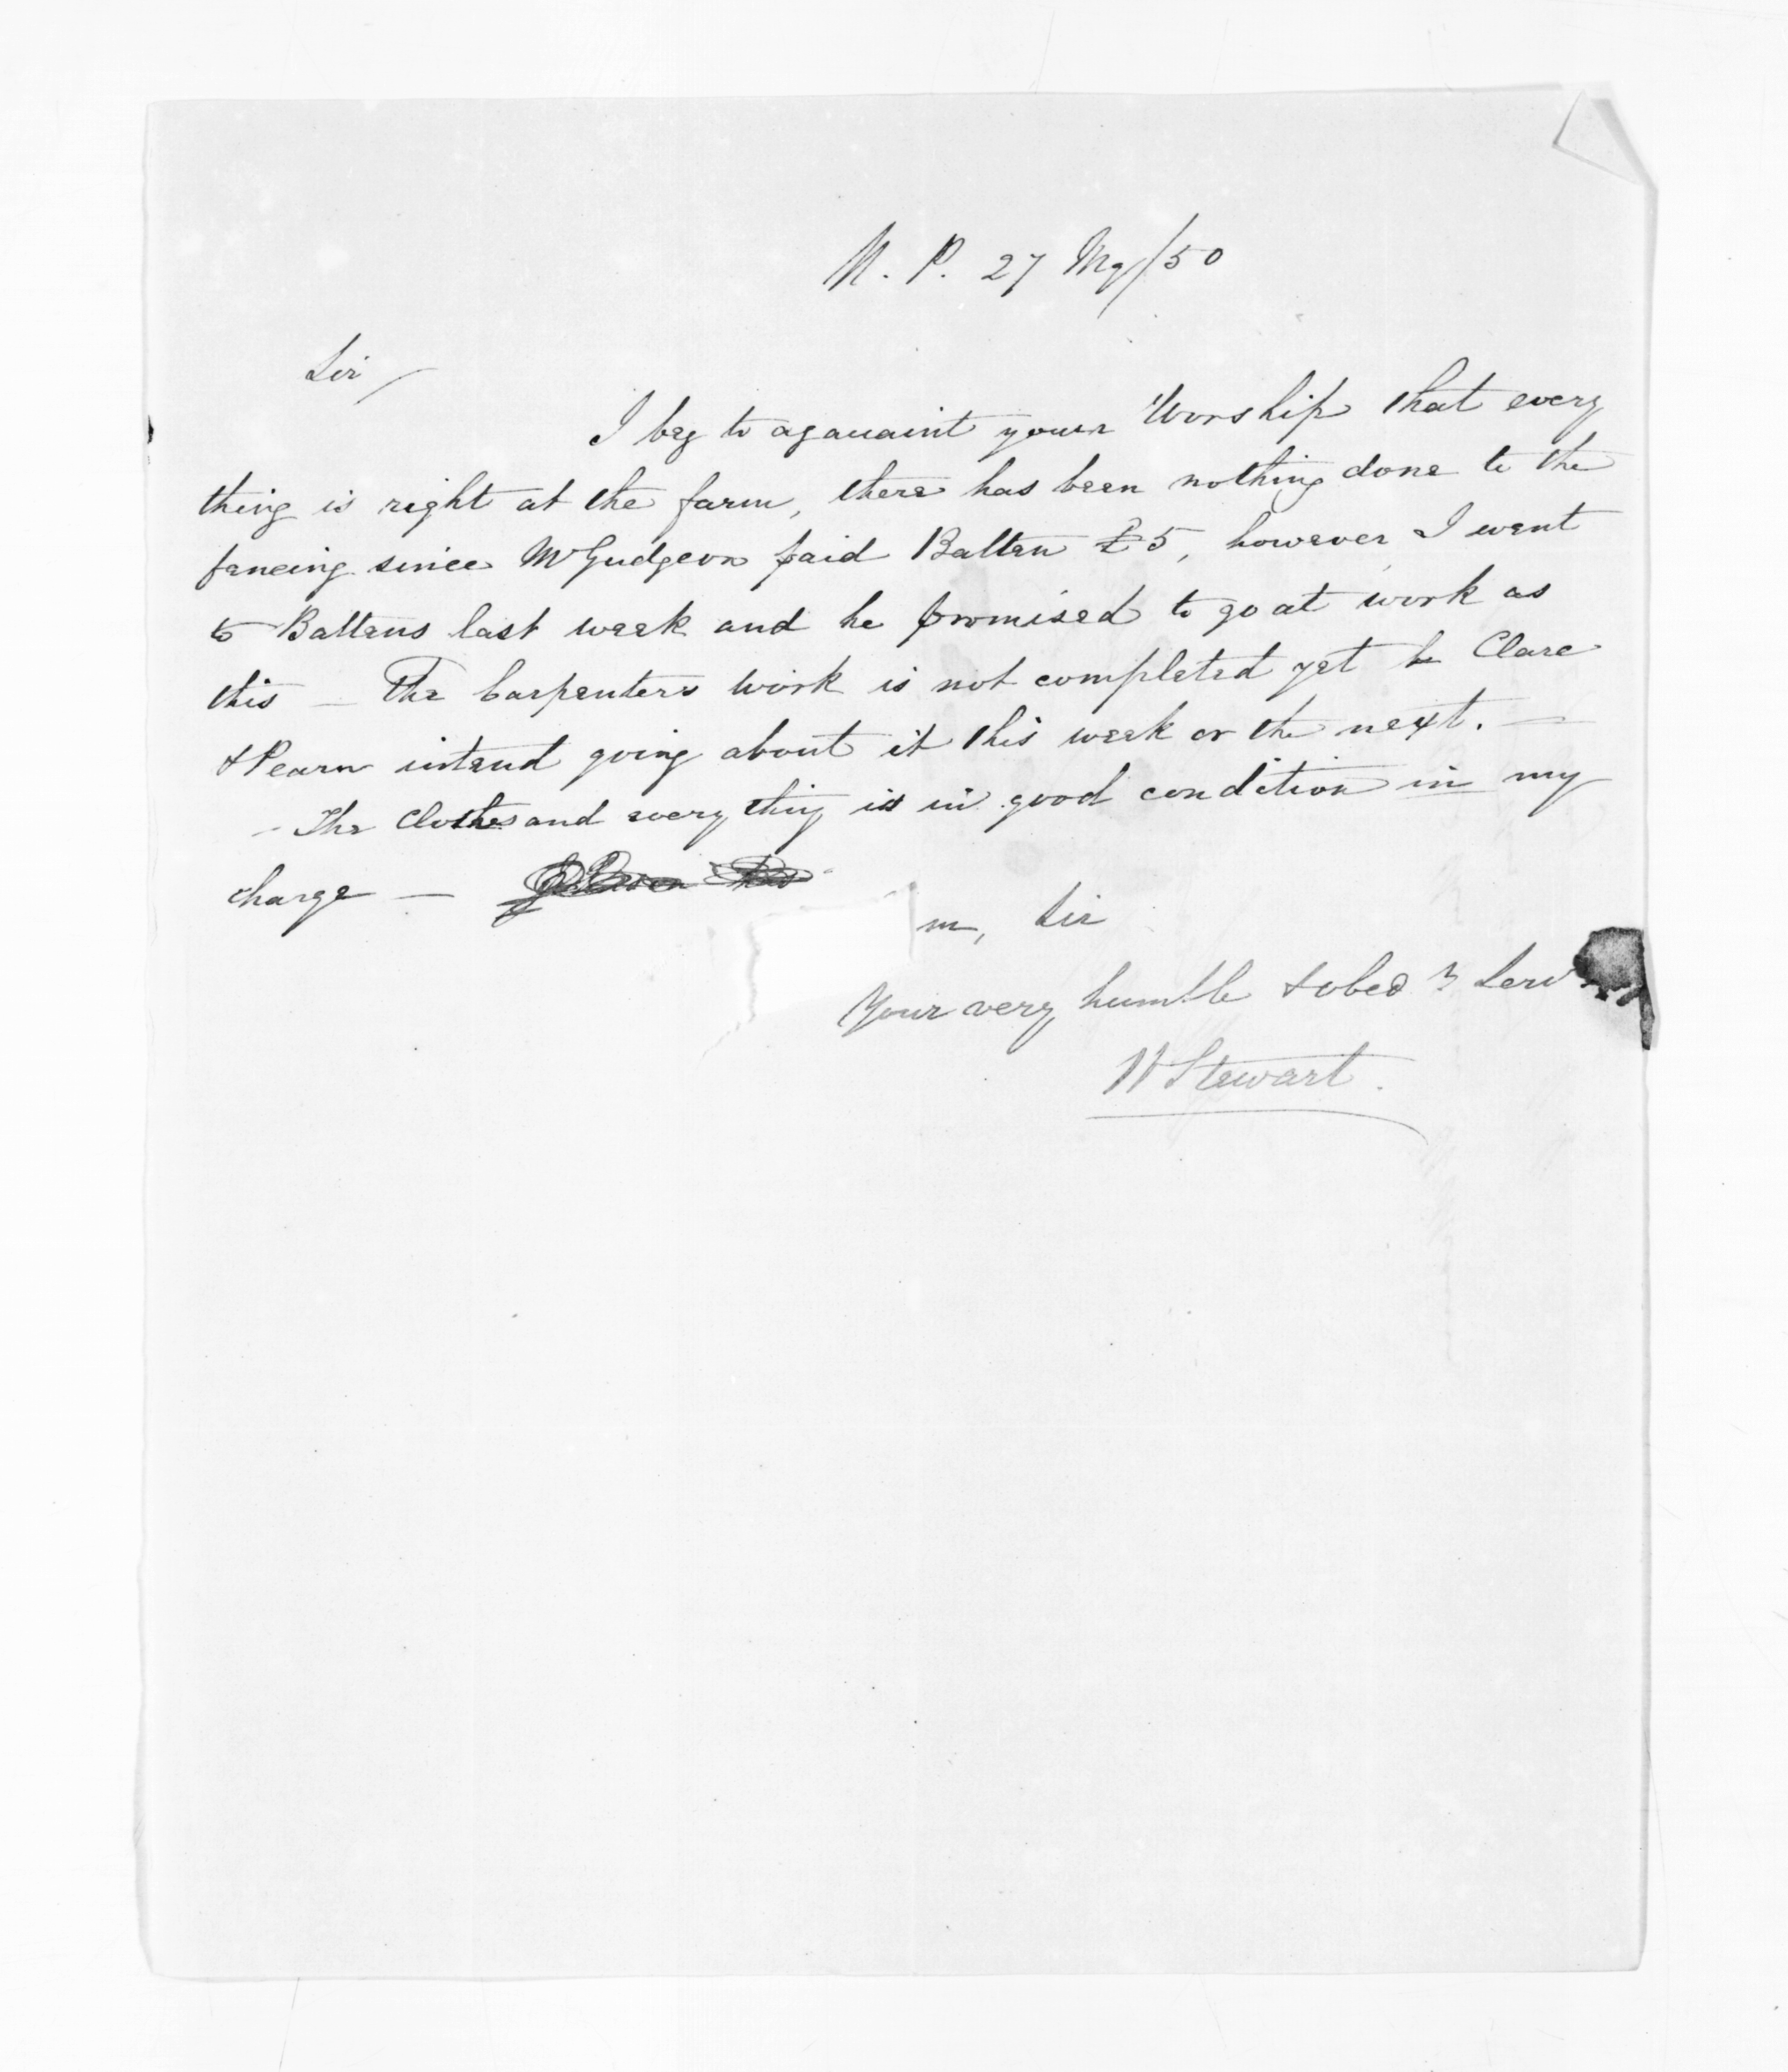 N. P. 27 My/50
Sir/
I beg to aqauaint your Worship that every
thing is right at the farm, there has been nothing done to the
fencing since Mr Gudgeon paid Batten £5, however I went
to Battens last week and he promised to go at work as
this — The Carpenters work is not completed yet but Clare
& Pearn intend going about it this week or the next. —
— The Clothes and every thing is in good condition in my
charge —
m, Sir
Your very humble & obedt Serv
W Stewart.